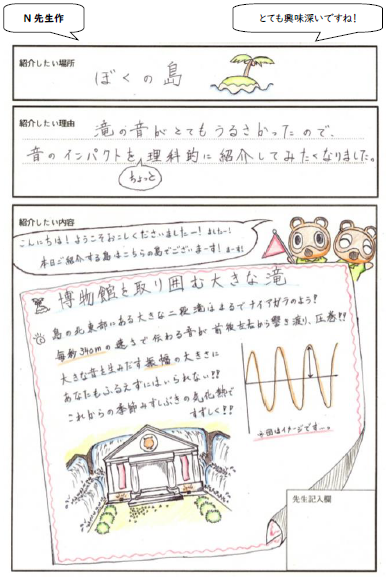 N 先生作
とても興味深いですね!
紹介したい場所
ぼくの島
紹介したい理由
滝の音がとてもうるさかったので、
音のインパクトを理科的に紹介してみたくなりました。
ちょっと
紹介したい内容
こんにちは!ようこそおこしくださいましたー!ましたー!
本日ご紹介する島はこちらの島でございまーす!まーす!
博物館を取り囲む大きな滝
島の北東部にある大きな二段滝はまるでナイアガラのよう?
毎秒340mの速さで伝わる音が前後左右から響き渡り、圧巻!!
大きな音を生みだす振幅の大きさに
あなたもふるえずにはいられない!?
これからの季節みずしぶきの気化熱で
すずしく!?
※図はイメージです…。
先生記入欄